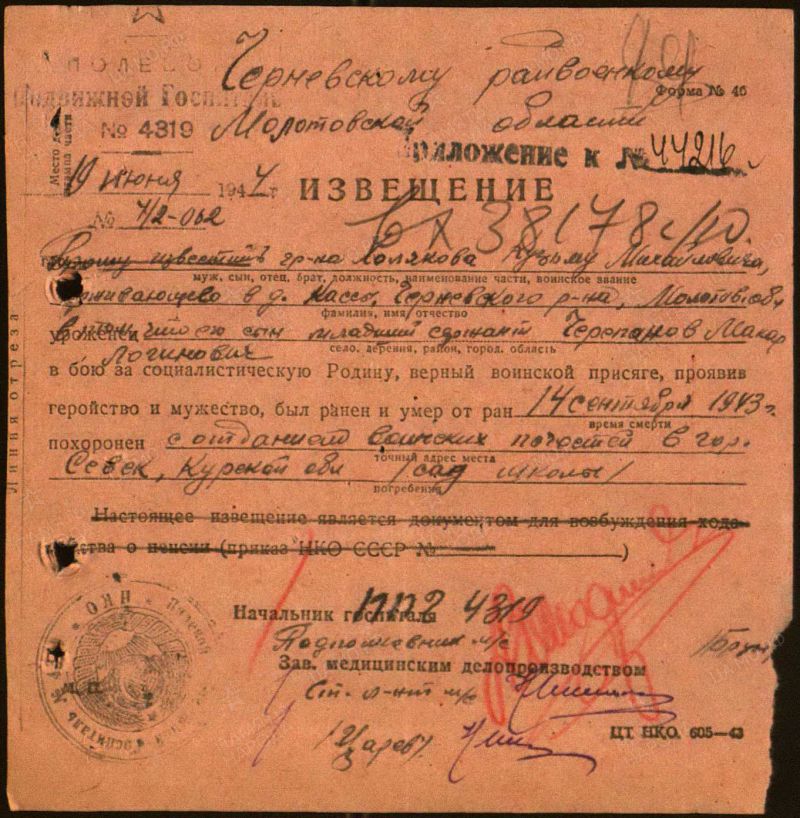 ПОЛЕВОЙ
Подвижной Госпиталь
№ 4319
Черневскому райвоенкому
Форма № 46
Молотовской области
Приложение к № 44216
Место
штампа части
19 июня 1944 г
ИЗВЕЩЕНИЕ
№ 7/2-062
вх 38178с
Прошу известить гр-на Полякова Кузьму Михайловича,
муж, сын, отец, брат, должность, наименование части, воинское звание
проживающего в д. Кассы, Черневского р-на, Молотов. обл
фамилия, имя, отчество
уроженец в том что его сын младший сержант Черепанов Макар
Логинович
село, деревня, район, город, область
в бою за социалистическую Родину, верный воинской присяге, проявив
геройство и мужество, был ранен и умер от ран 14 сентября 1943 г.
время смерти
похоронен с отданием воинских почестей в гор.
точный адрес места
Севск, Курской обл /сад школы/
погребения
Настоящее извещение является документом для возбуждения хода-
тайства о пенсии (приказ НКО СССР № )
Линия отреза
Начальник госпиталя ППГ 4319
Подполковник м/с
Зав. медицинским делопроизводством
Ст. л-нт м/с
/Царев/
ЦТ НКО. 605—43